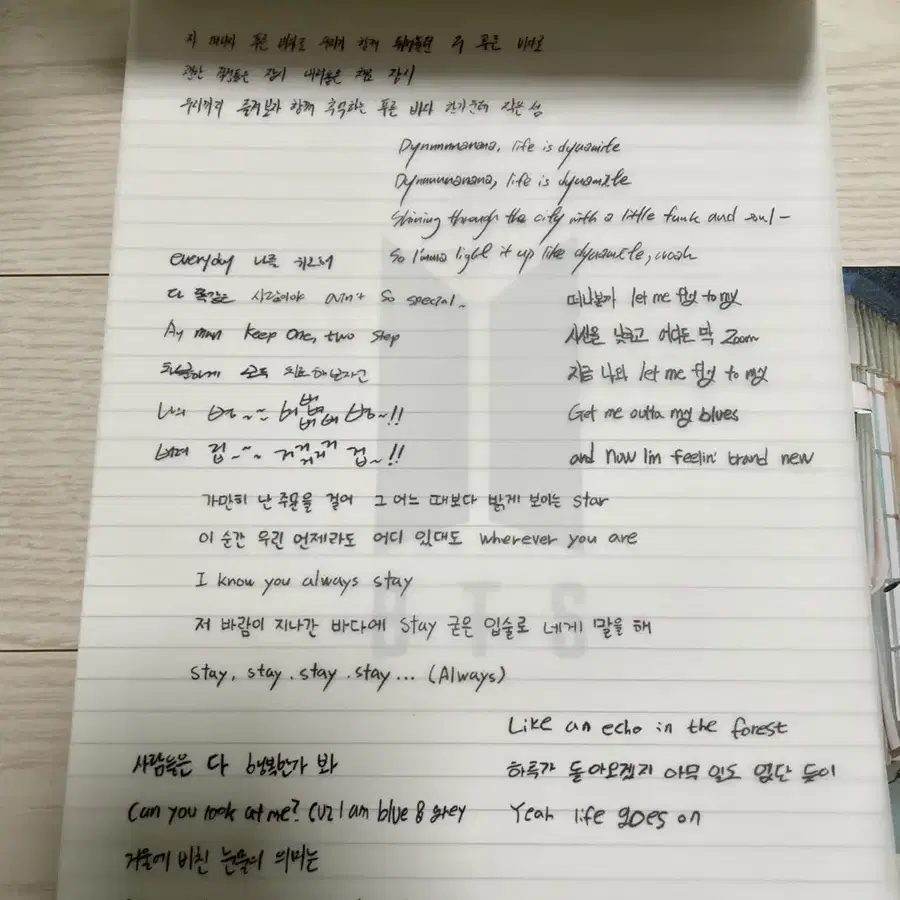 저 너머의 푸른 바다로 우리가 함께 뛰어놀던 저 푸른 바다로
괜한 걱정들은 잠시 내려놓은 채로 잠시
우리끼리 즐겨보자 함께 추억하는 푸른 바다 한가운데 작은 섬
Dynnnnnanana, life is dynamite
Dynnnnnanana, life is dynamite
Shining through the city with a little funk and soul-
So I'mma light it up like dynamite, woah
everyday 나를 위로해
다 똑같은 사람이야 ain't so special.
Ay man keep one, two step
차분하게 모두 치료해보자고
나의 병~~ 버버버버버 병~!!
버려 겁~~ 거거거거거 겁~!!
떠나볼까 let me fly to my
시선을 낮추고 어디든 막 zoom
지금 나의 let me fly to my
Get me outta my blues
and now I'm feelin' brand new
가만히 난 주문을 걸어 그 어느 때보다 밝게 보이는 star
이 순간 우린 언제라도 어디 있대도 wherever you are
I know you always stay
저 바람이 지나간 바다에 stay 굳은 입술로 네게 말을 해
Stay, stay. stay. stay... (Always)
Like an echo in the forest
하루가 돌아오겠지 아무 일도 없단 듯이
Yeah life goes on
사람들은 다 행복한가 봐
Can you look at me? cuz I am blue & grey
거울에 비친 눈물의 의미는
BTS